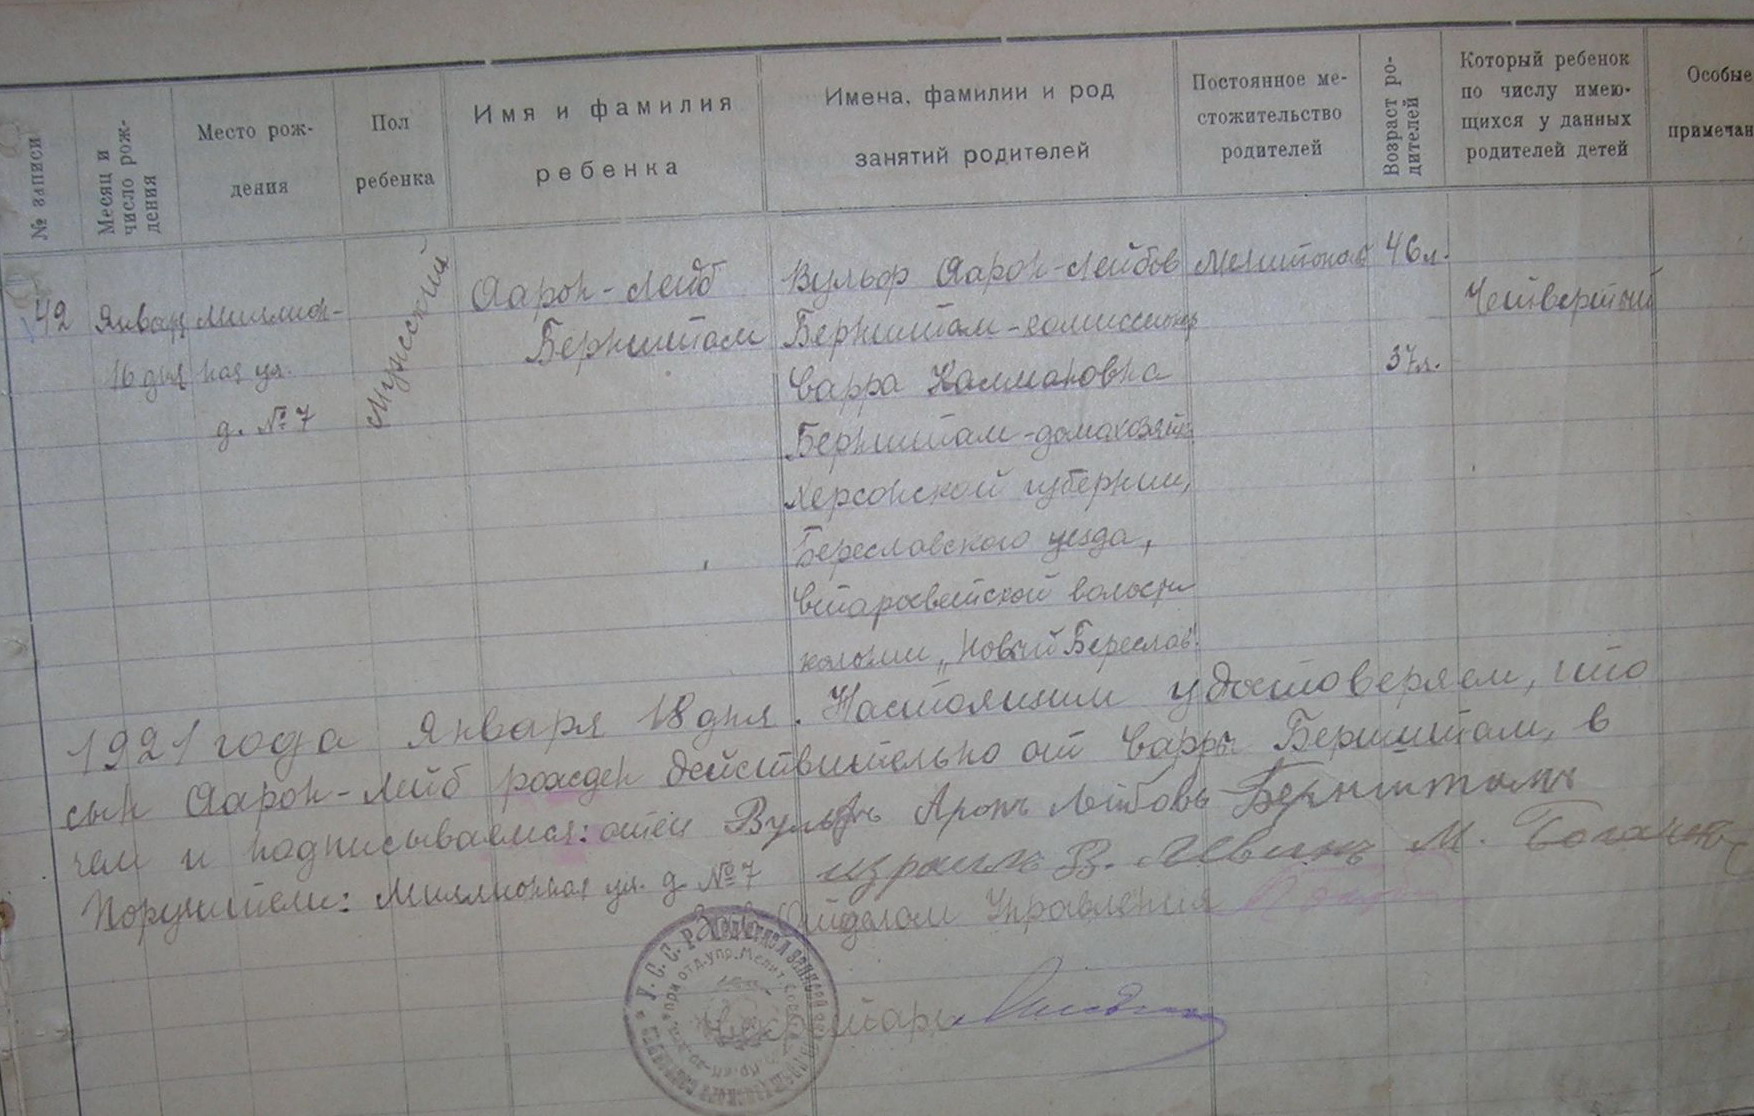 № записи
Месяц и число рождения
Место рож-
дения
Пол
ребенка
Имя и фамилия
ребенка
Имена, фамилии и род
занятий родителей
Постоянное ме-
стожительство
родителей
Возраст ро-
дителей
Который ребенок
по числу имею-
щихся у данных
родителей детей
Особые
примечан
42
Январ
16 дня
Миллион-
ная ул.
д. № 7
Мужеский
Аарон-Лейб
Бернштам
Вульф Аарон-Лейбов
Бернштам-комиссионер
Сарра Калмановна
Бернштам-домохозяйка
Херсонской губернии,
Береславского уезда,
колонии „Новый Береслав".
Мелитополь
46 л.
37 л.
Четвертый
1921 года Января 18 дня. Настоящим удостоверяем, что
сын Аарон-Лейб рожден действительно от Сарры Бернштам, в
чем и подписываемся: отец Вульфъ Аронъ Лейбовъ Бернштамъ
Поручители: Миллионная ул. д. № 7 Израиль В. Левинъ М.
Зав. Отделом Управления
У. С. С. Р.